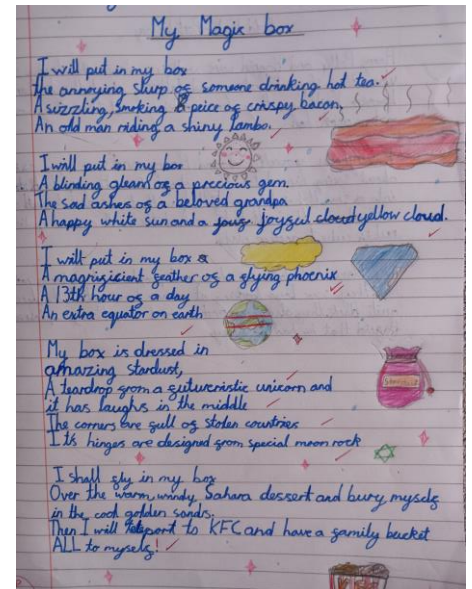 My Magic box
I will put in my box
The annoying slurp of someone drinking hot tea.
A sizzling, smoking peice of crispy bacon.
An old man riding a shiny lambo.
I will put in my box
A blinding gleam of a precious gem.
The sad ashes of a beloved grandpa
A happy white sun and a joyful cloud yellow cloud.
I will put in my box
A magnificient feather of a flying phoenix
A 13th hour of a day
An extra equator on earth
My box is dressed in
amazing stardust,
A teardrop from a futureristic unicorn and
it has laughs in the middle
The corners are full of stolen countries
It's hinges are designed from special moon rock
I shall fly in my box
Over the warm, windy, Sahara dessert and bury myself
in the cool golden sands.
Then I will teleport to KFC and have a family bucket
ALL to myself!